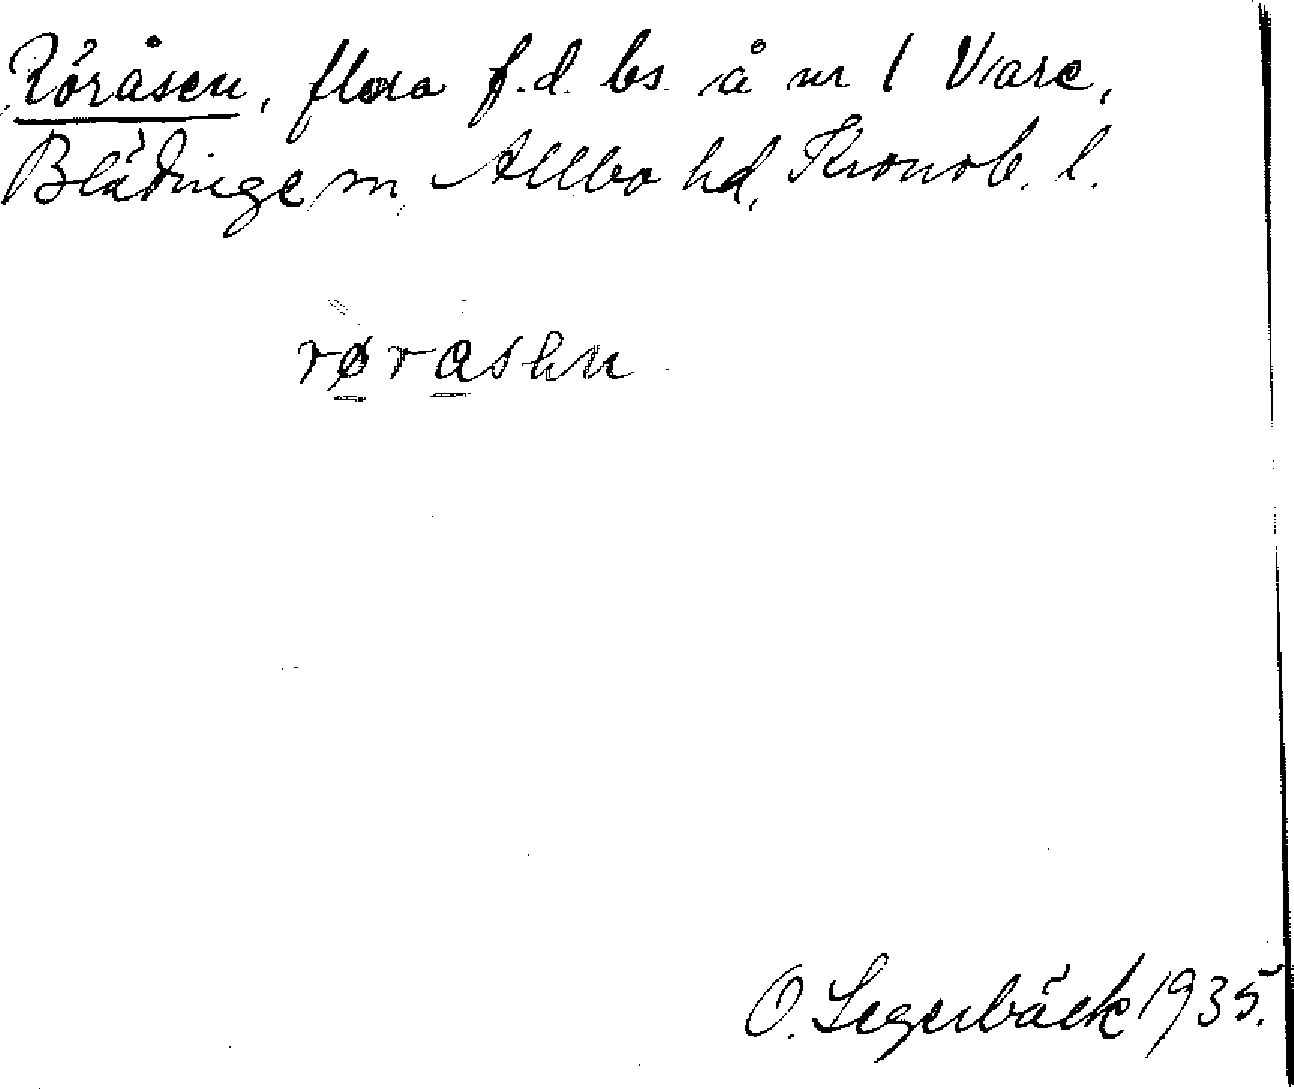 Röråsen, flera f.d. bs. å nr 1 Vare,
Blädinge sn, Allbo hd, Kronob. l.
rørashn
O. Segerbäck 1935.